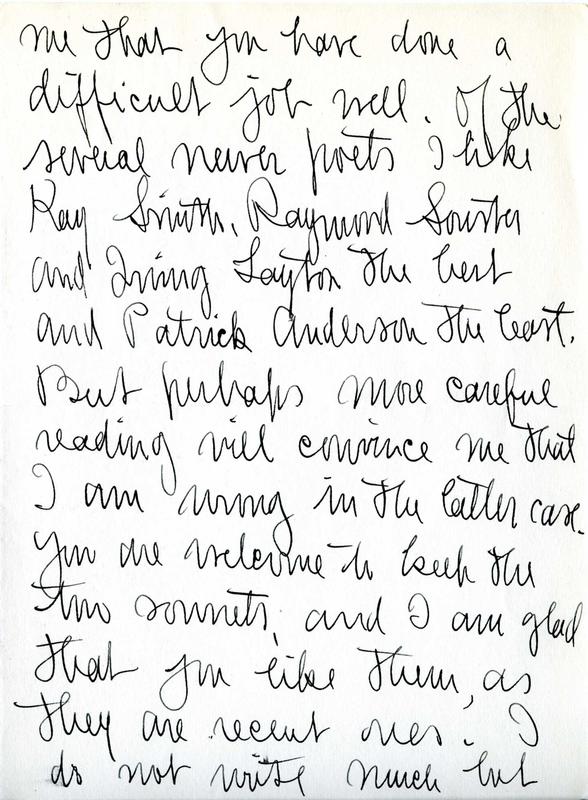 me that you have done a
difficult job well. Of the
several newer poets I like
Kay Smith, Raymond Souster
and Irving Layton the best
and Patrick Anderson the least.
But perhaps more careful
reading will convince me that
I am wrong in the latter case.
You are welcome to keep the
two sonnets, and I am glad
that you like them, as
they are recent ones. I
do not write much but